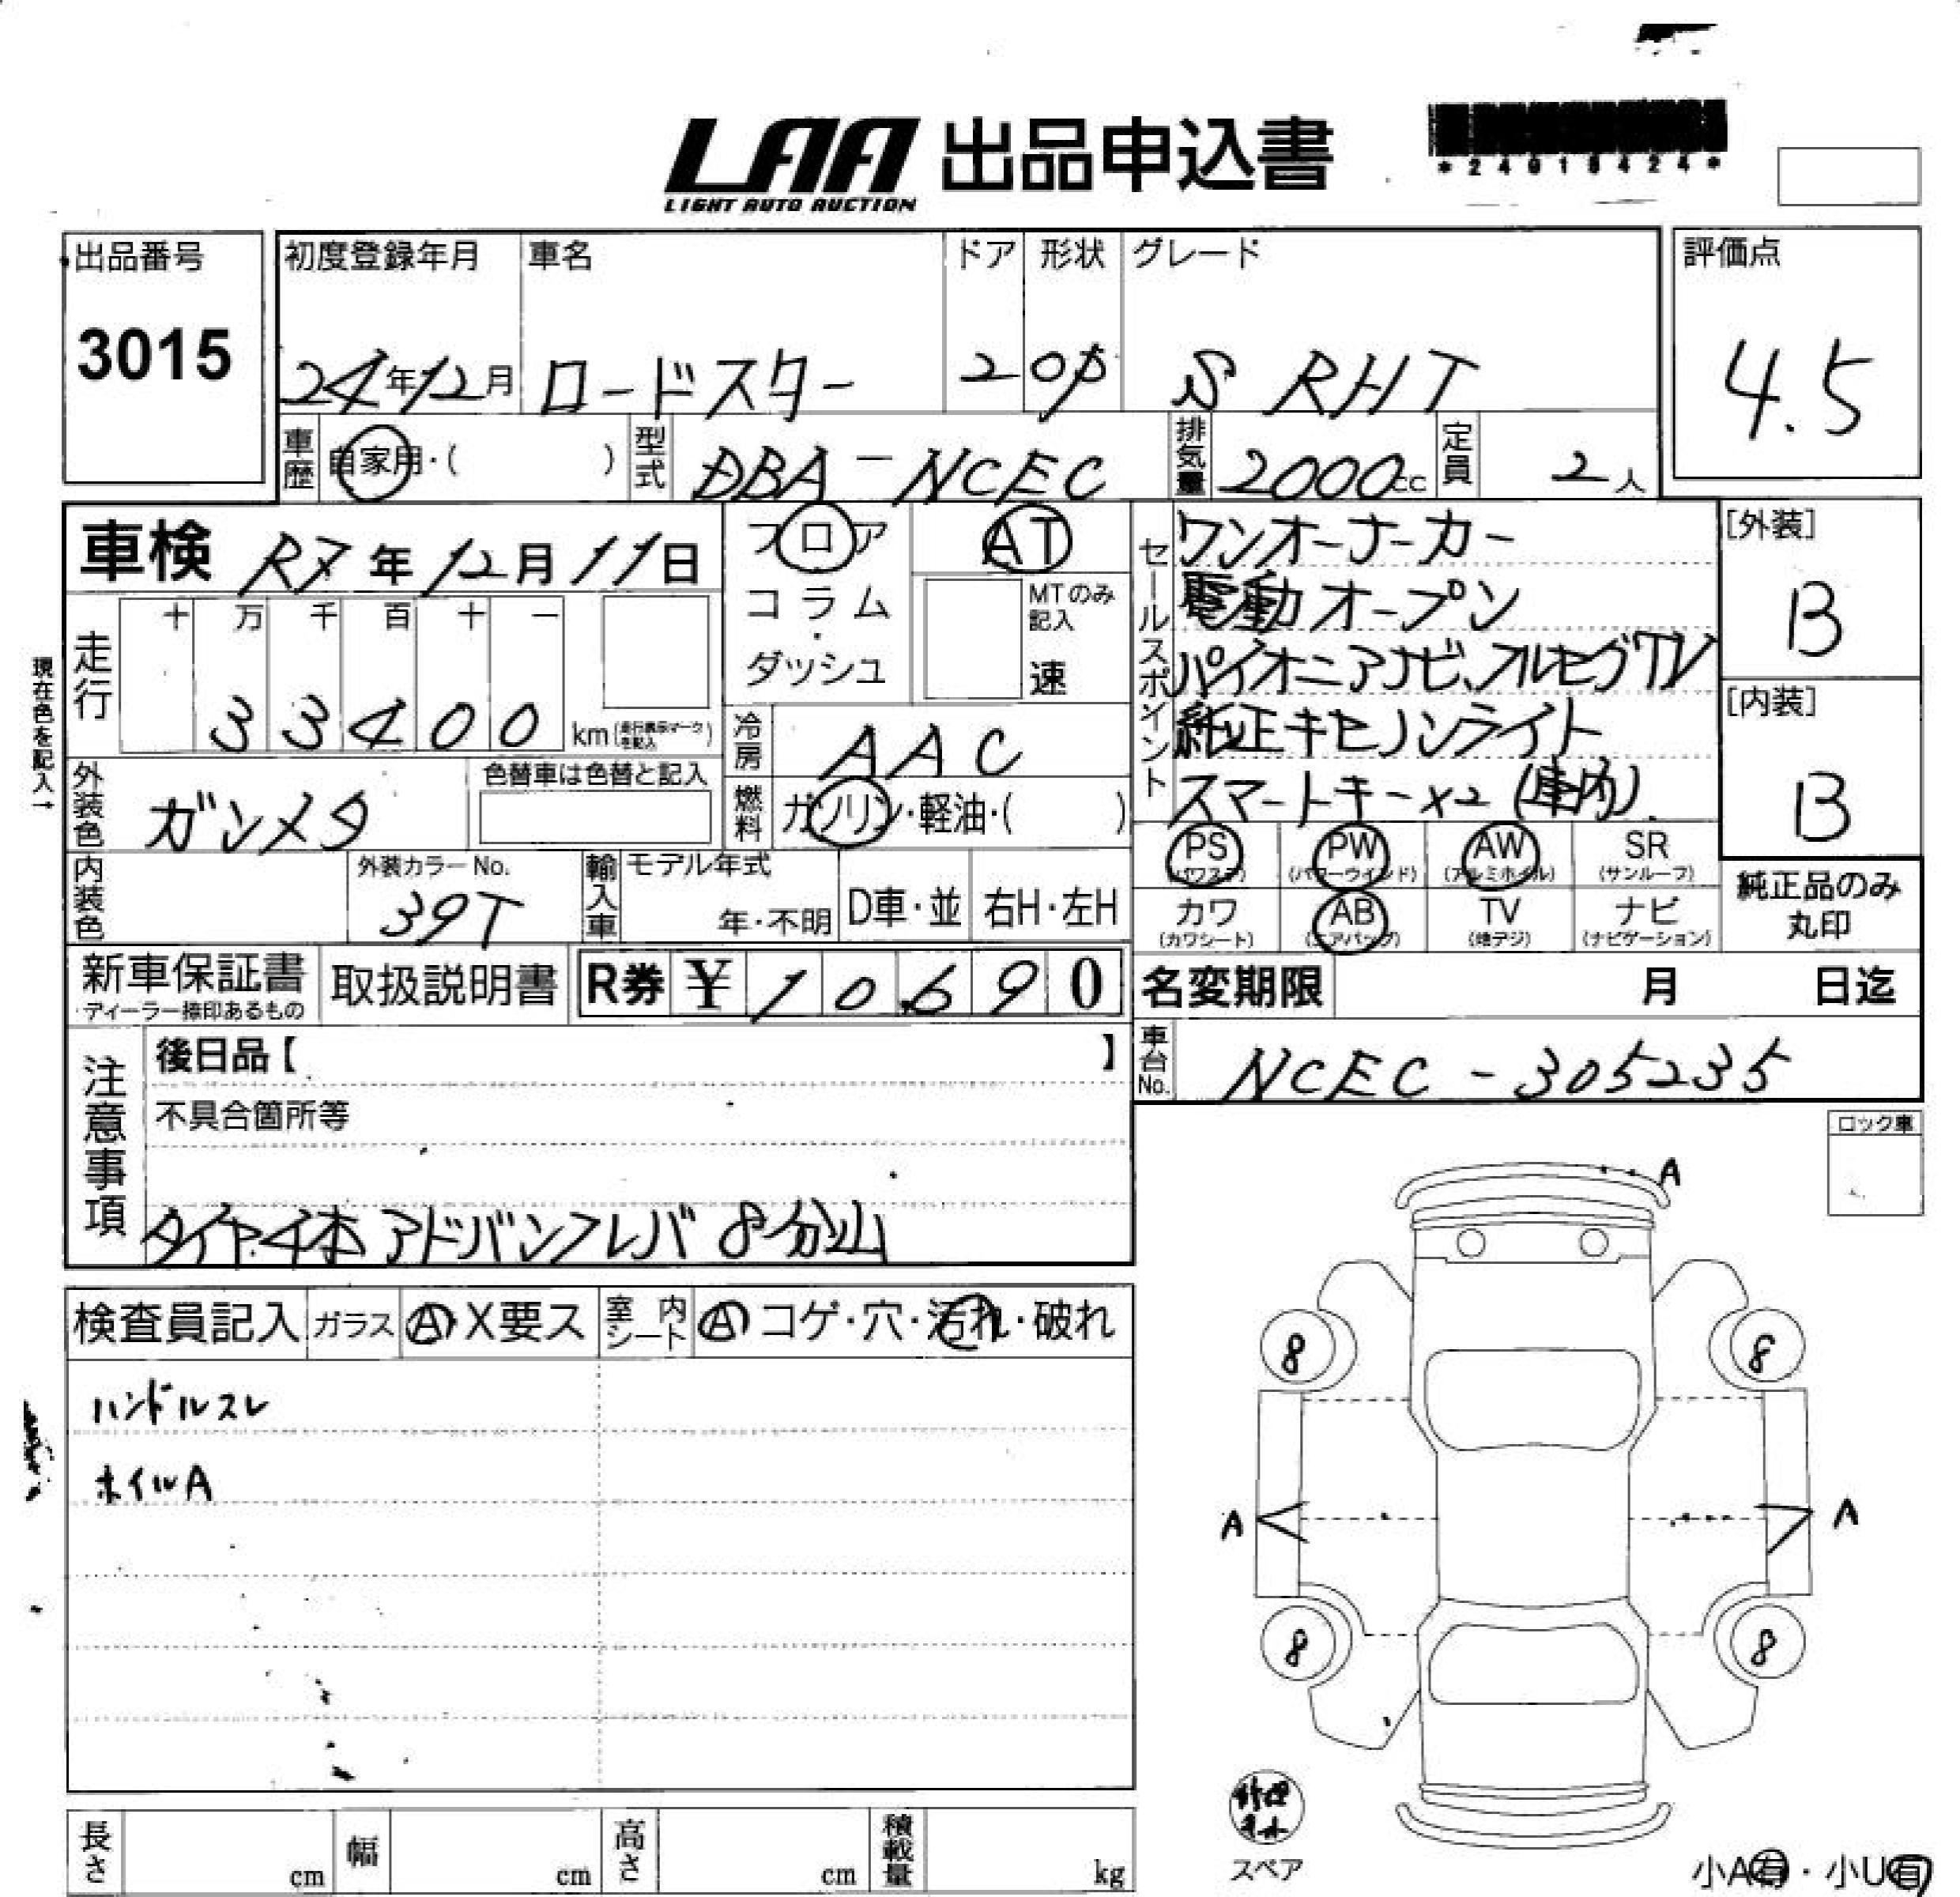 LAA 出品申込書
LIGHT AUTO AUCTION
*24018424*
出品番号
3015
初度登録年月 車名 ドア 形状 グレード
24年12月 ロードスター 2 OP S RHT
評価点
4.5
車歴 自家用・( ) 型式 DBA-NCEC 排気量 2000cc 定員 2人
車検 R7年12月11日
フロア
コラム
・
ダッシュ
AT
MTのみ記入
速
現在色を記入→
走行 十 万 千 百 十 一
33400 km(走行表示マークを記入)
冷房 AAC
燃料 ガソリン・軽油・( )
外装色 ガンメタ 色替車は色替と記入
内装色 外装カラーNo. 39T
輸入車 モデル年式 年・不明 D車・並 右H・左H
セールスポイント
ワンオーナーカー
電動オープン
パイオニアナビ、フルセグTV
純正キセノンライト
スマートキー×2(車内)
[外装]
B
[内装]
B
PS PW AW SR
(パワステ) (パワーウインド) (アルミホイル) (サンルーフ)
カワ AB TV ナビ
(カワシート) (エアバッグ) (地デジ) (ナビゲーション)
純正品のみ
丸印
新車保証書 取扱説明書 R券 ¥10,690
ディーラー捺印あるもの
名変期限 月 日迄
車台No. NCEC-305235
注意事項
後日品【 】
不具合箇所等
タイヤ4本 アドバンフレバ 8分山
ロック車
検査員記入 ガラス A・X要ス 室内シート A コゲ・穴・汚れ・破れ
ハンドルスレ
ホイルA
A
8 8
A A
8 8
スペア
小A有・小U有
長さ cm 幅 cm 高さ cm 積載量 kg